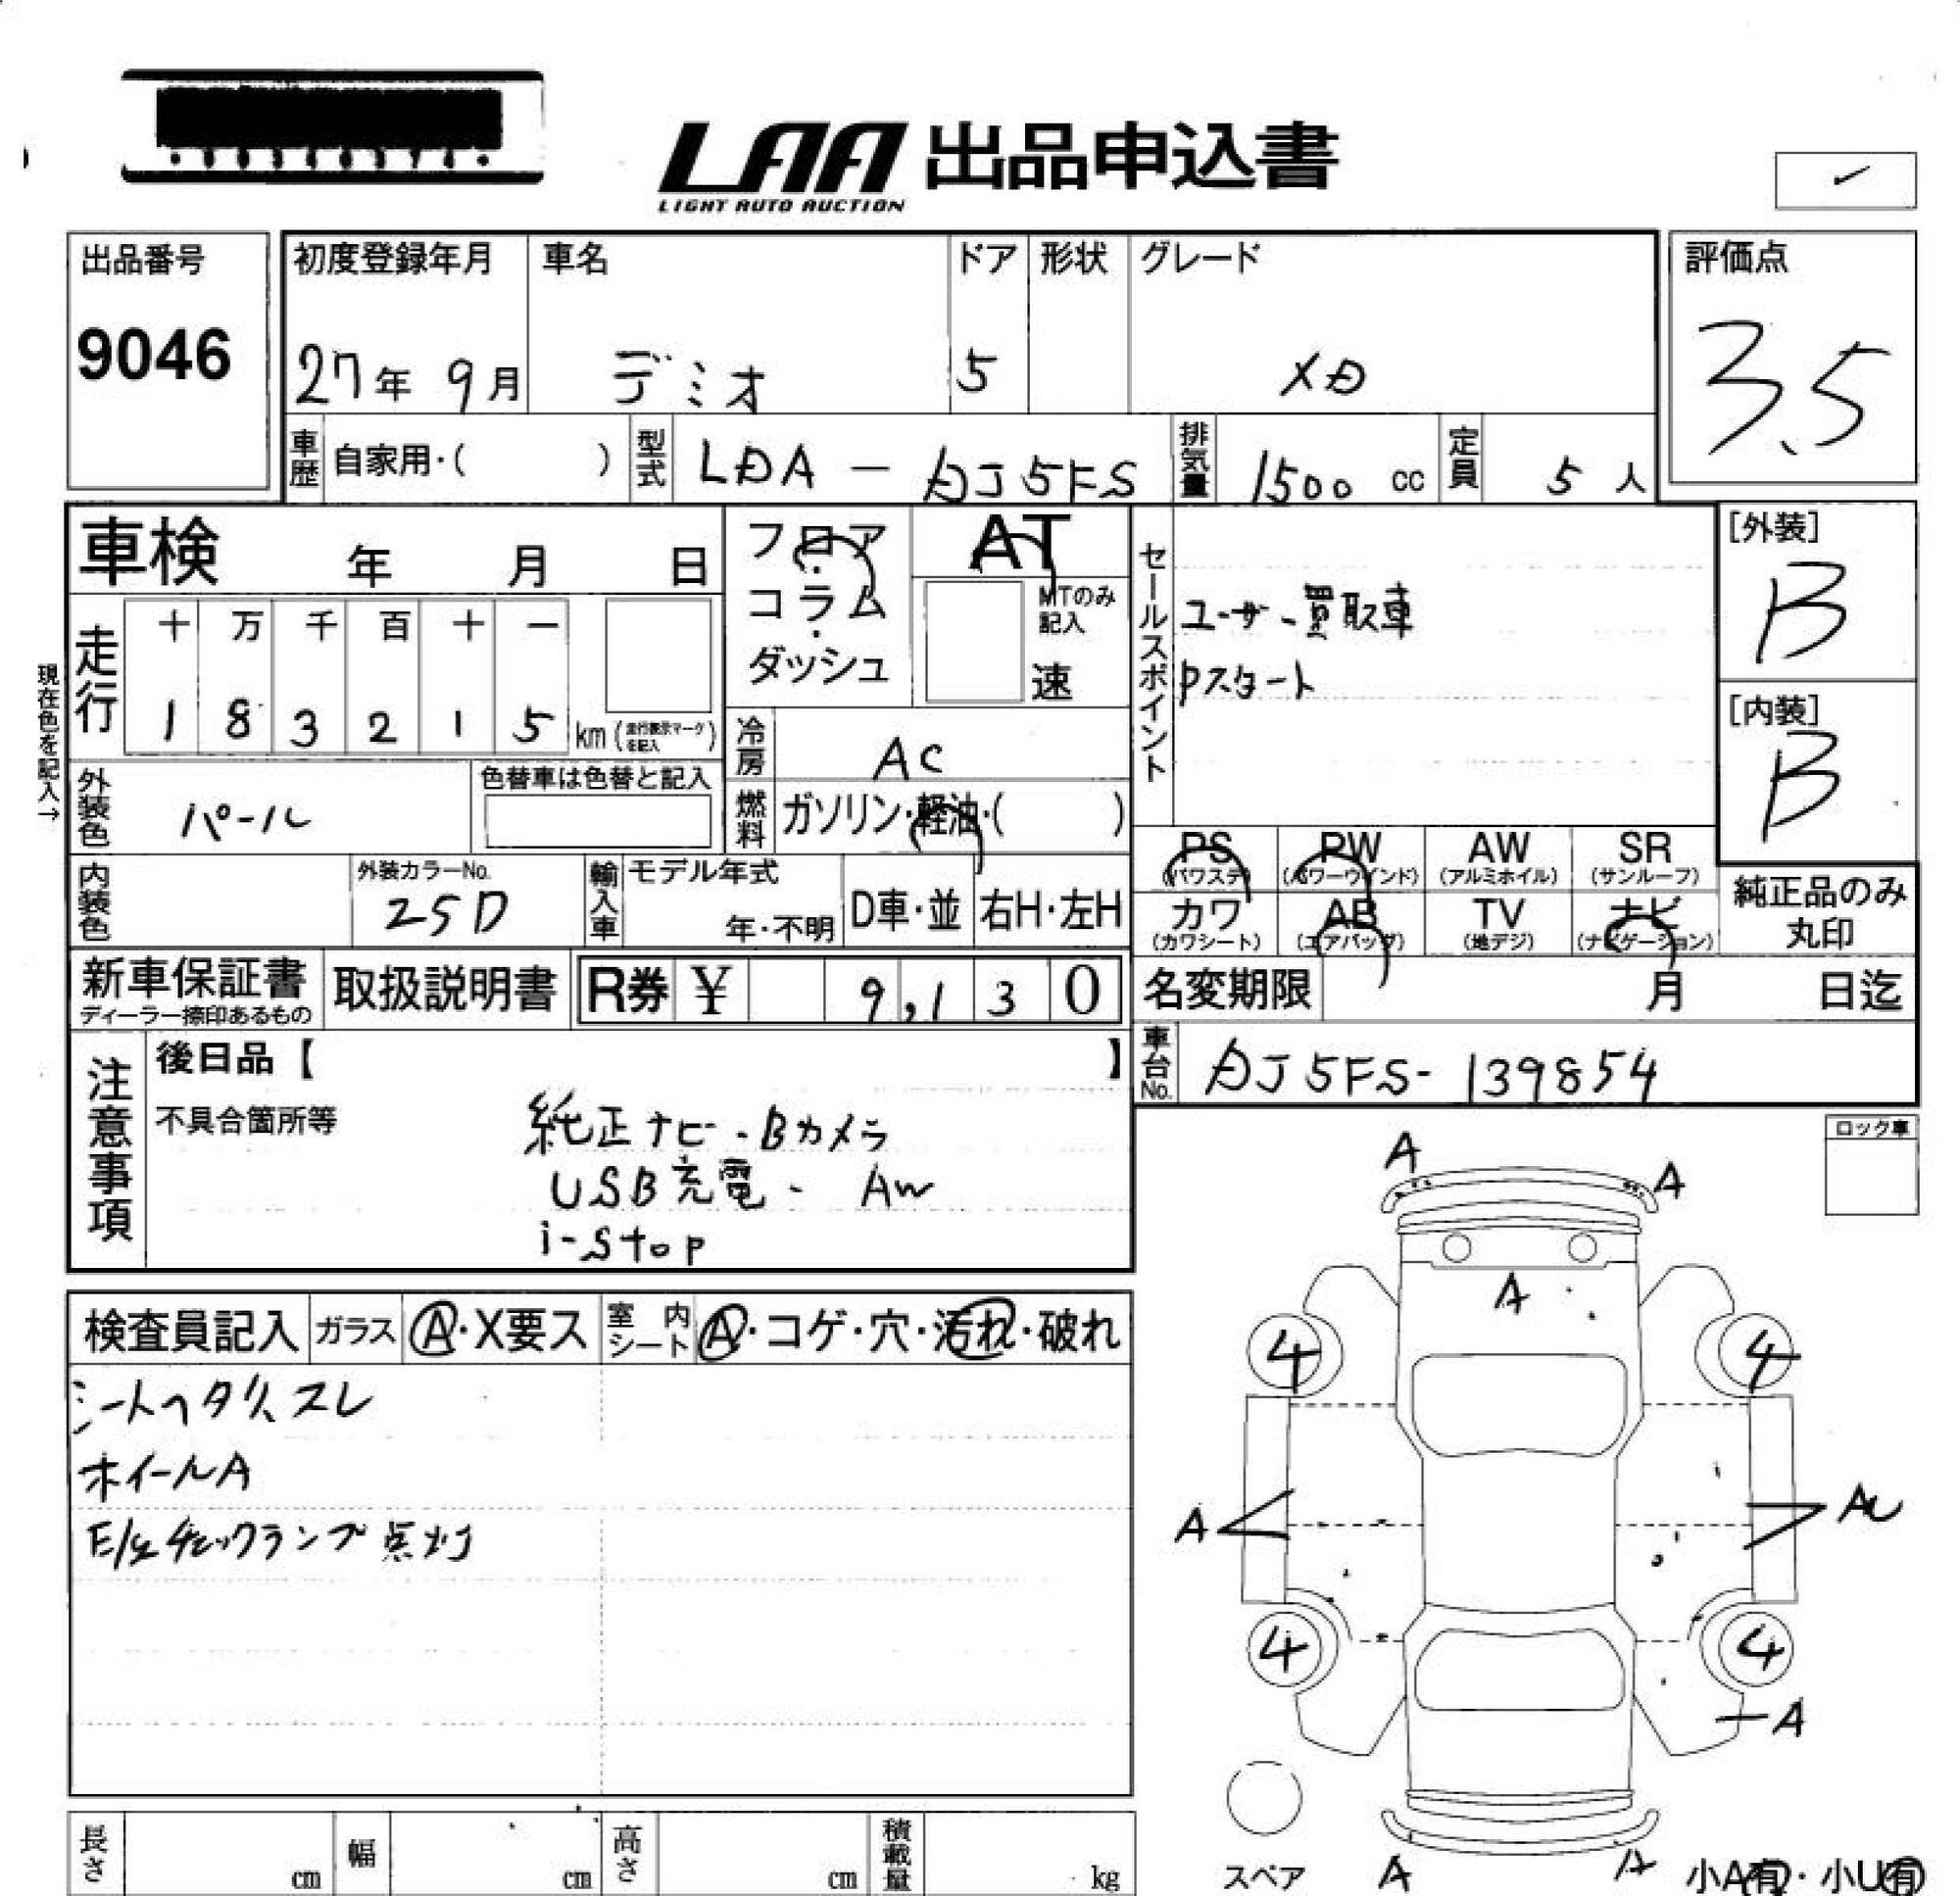 LAA 出品申込書
LIGHT AUTO AUCTION
出品番号
9046
初度登録年月
27年 9月
車名
デミオ
ドア
5
形状
グレード
XD
評価点
3.5
車歴 自家用・( )
型式 LDA - DJ5FS
排気量 1500 cc
定員 5 人
車検 年 月 日
フロア・コラム・ダッシュ
AT
MTのみ記入
速
セールスポイント
ユーザー買取車
Pスタート
[外装]
B
[内装]
B
現在色を記入→
走行
十 万 千 百 十 一
1 8 3 2 1 5 km (走行表示マークを記入)
冷房 AC
燃料 ガソリン・軽油・( )
外装色 パール
色替車は色替と記入
内装色
外装カラーNo.
25D
輸入車 モデル年式
年・不明
D車・並
右H・左H
PS (パワステ)
PW (パワーウインド)
AW (アルミホイル)
SR (サンルーフ)
カワ (カワシート)
AB (エアバッグ)
TV (地デジ)
ナビ (ナビゲーション)
純正品のみ丸印
新車保証書
ディーラー捺印あるもの
取扱説明書
R券 ¥ 9,130
名変期限 月 日迄
車台No. DJ5FS-139854
注意事項
後日品【 】
不具合箇所等
純正ナビ・Bカメラ
USB充電・ AW
i-stop
ロック車
検査員記入
ガラス A・X要ス
室内シート A・コゲ・穴・汚れ・破れ
シートヘタリ、スレ
ホイールA
E/gチェックランプ点灯
A A
A
4 4
A AU
4 4
A
スペア
A A
小A有・小U有
長さ cm
幅 cm
高さ cm
積載量 kg